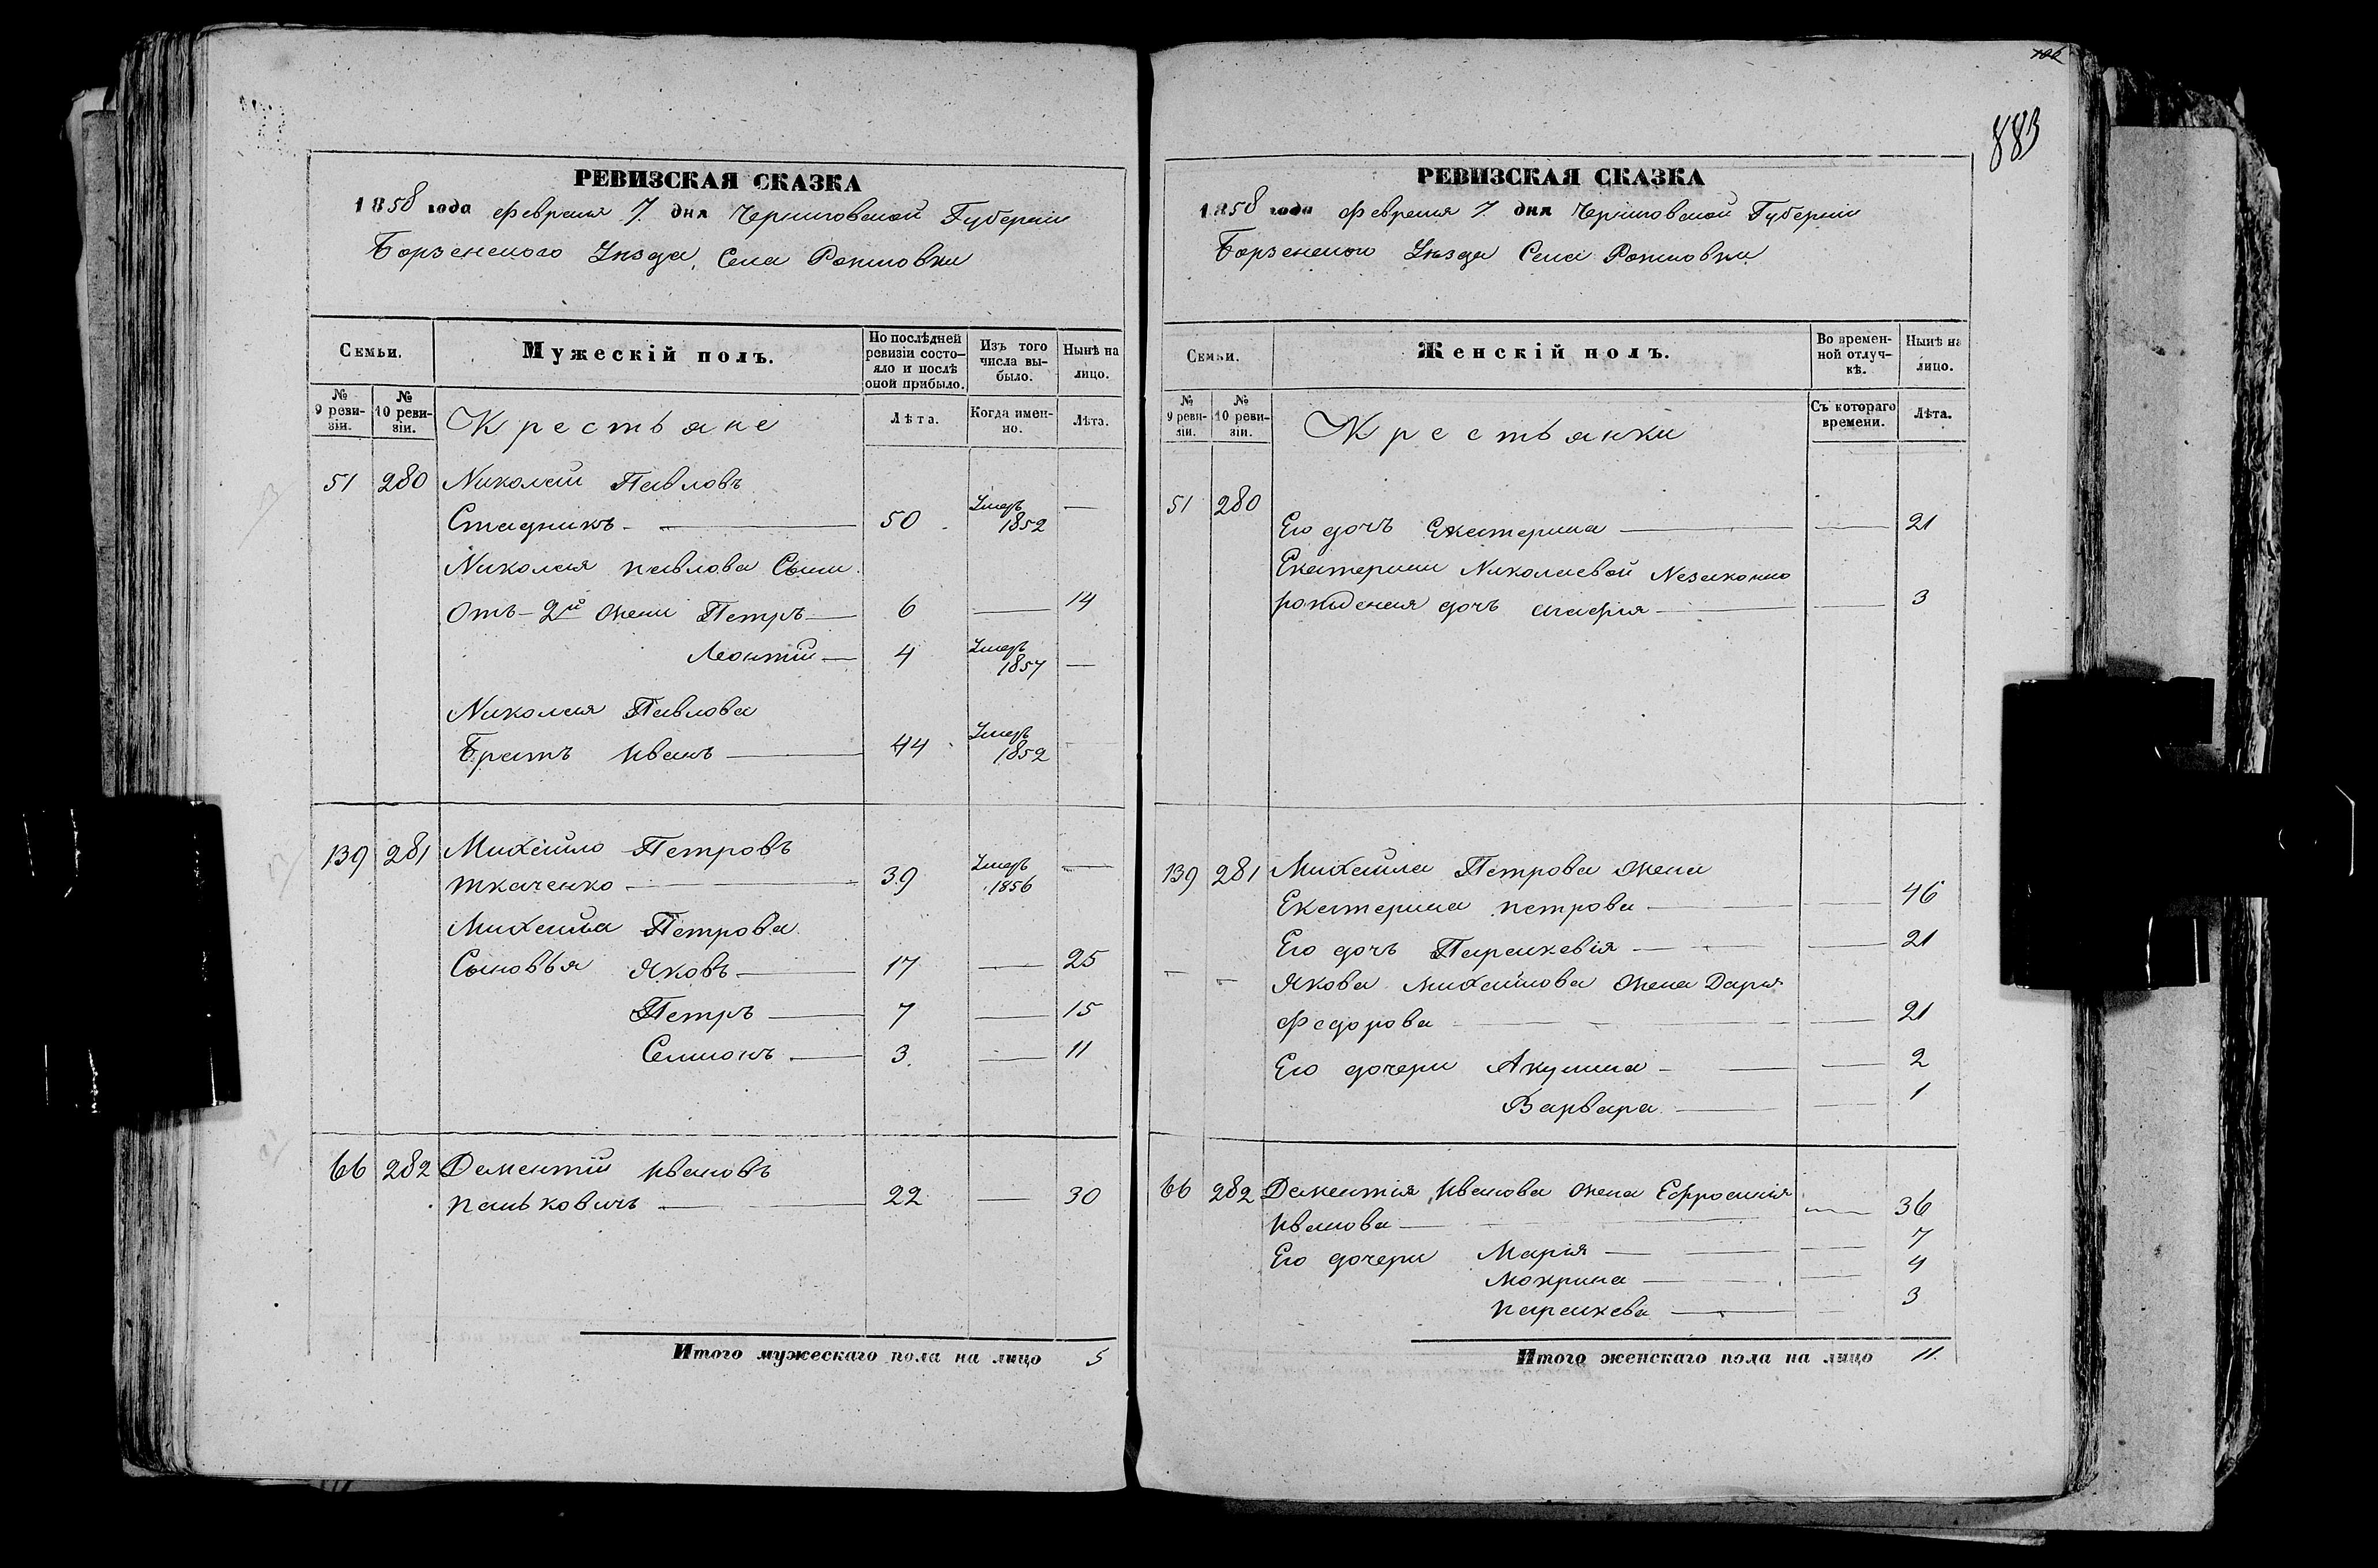 РЕВИЗСКАЯ СКАЗКА
1858 года Февраля 7. дня Черниговской Губерніи
Борзенского Уѣзда, Села
Семьи.
Мужескій полъ.
По послѣдней ревизіи состояло и послѣ оной прибыло.
Изъ того числа выбыло.
Нынѣ на лицо.
№ 9 ревизіи.
№ 10 ревизіи.
Крестьяне
Лѣта.
Когда именно.
Лѣта.
51 280 Николай Павловъ
Стадникъ — 50 Умеръ 1852 —
Николая Павлова Сыни
Отъ 2й жени Петръ — 6 — 14
Леонтій — 4 Умеръ 1857 —
Николая Павлова
Братъ Иванъ — 44 Умеръ 1852 —
139 281 Михайло Петровъ
Ткаченко — 39 Умеръ 1856 —
Михайла Петрова
Сыновья Яковъ — 17 — 25
Петръ — 7 — 15
Семионъ — 3. — 11
66 282 Дементій Ивановъ
Панькович​ъ — 22 — 30
Итого мужескаго пола на лицо 5
106
883
РЕВИЗСКАЯ СКАЗКА
1858 года Февраля 7. дня Черниговской Губерніи
Борзенского Уѣзда Села
Семьи.
Женскій полъ.
Во временной отлучкѣ.
Нынѣ на лицо.
№ 9 ревизіи.
№ 10 ревизіи.
Крестьянки
Съ котораго времени.
Лѣта.
51 280
Его дочъ Екатерина — — 21
Екатерини Николаевой Незаконно
рожденая дочъ Агафія — — 3
139 281 Михайла Петрова жена
Екатерина Петрова — — 46
Его дочъ Параскевія — — 21
Якова Михайлова жена Дарья
Федорова — — 21
Его дочери Акулина — — 2
Варвара — — 1
66 282 Дементія Иванова жена Ефросинія
Иванова — — 36
Его дочери Марія — — 7
Мокрина — — 4
Параскева — — 3
Итого женскаго пола на лицо 11.